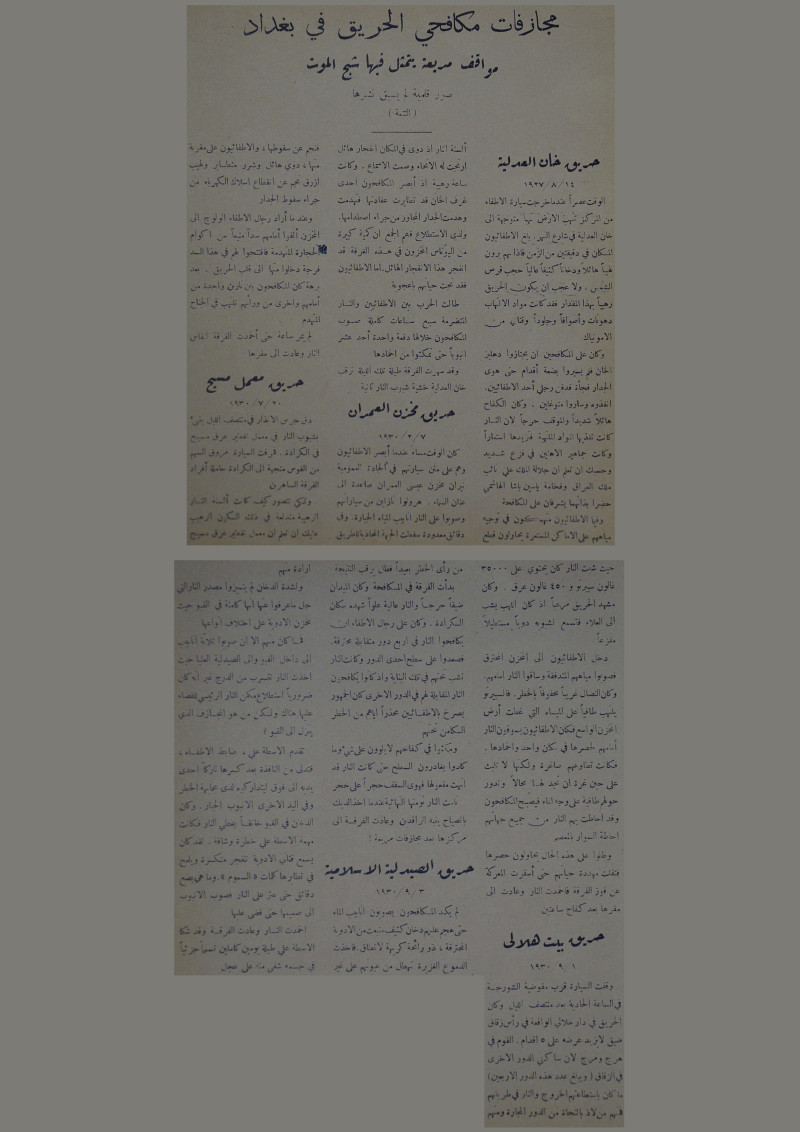 مجازفات مكافحي الحريق في بغداد
مواقف مريعة يتمثل فيها شبح الموت
صور قلمية لم يسبق نشرها
( التتمة )
حريق خان العدلية
١٩٢٧/٨/١٤
الوقت عصراً عندما خرجت سيارة الاطفاء
من المركز تنهب الارض نهبا متوجهة الى
خان العدلية في شارع النهر. بلغ الاطفائيون
المكان في دقيقتين من الزمن فاذا بهم يرون
لهباً هائلاً ودخاناً كثيفاً عالياً حجب قرص
الشمس. ولا عجب ان يكون الحريق
رهيباً بهذا المقدار فقد كانت مواد الالتهاب
دهونات وأصوافاً وجلوداً وقناني من
الامونياك
وكان على المكافحين ان يجتازوا دهليز
الخان فلم يسيروا بضعة أقدام حتى هوى
الجدار فجأة فدفن رجلي أحد الاطفائيين.
انقذوه وساروا متوغلين. وكان الكفاح
هائلاً شديداً والموقف حرجاً لان النار
كانت تغذيها المواد الملتهبة فتزيدها استعاراً
وكانت جماهير الاهلين في فزع شديد
وحسبك ان تعلم ان جلالة الملك علي نائب
ملك العراق وفخامة ياسين باشا الهاشمي
حضرا بذاتهما يشرفان على المكافحة
وفيما الاطفائيون منهمكون في توجيه
مياههم على الاماكن المستعرة يحاولون قطع
ألسنة النار اذ دوى في المكان انفجار هائل
ارتجت له الانحاء وصمت الاسماع. وكانت
ساعة رهيبة اذ أبصر المكافحون احدى
غرف الخان قد تطايرت عقادتها فتهدمت
وهدمت الجدار المجاور من جراء اصطدامها.
ولدى الاستطلاع فهم الجمع ان كمية كبيرة
من البوتاس المخزون في هذه الغرفة قد
انفجر هذا الانفجار الهائل. اما الاطفائيون
فقد نجت حياتهم باعجوبة
طالت الحرب بين الاطفائيين والنار
المتضرمة سبع ساعات كاملة صوب
المكافحون خلالها دفعة واحدة أحد عشر
انبوباً حتى تمكنوا من اخمادها
وقد سهرت الفرقة طيلة تلك الليلة ترقب
خان العدلية خشية شبوب النار ثانية
حريق مخزن العمران
١٩٣٠/٢/٧
كان الوقت مساء عندما أبصر الاطفائيون
وهم على متن سيارتهم في الجادة العمومية
نيران مخزن عيسى العمران صاعدة الى
عنان السماء. هرولوا نازلين من سياراتهم
وصوبوا على النار انابيب المياه الجبارة. وفي
دقائق معدودة سقطت الجبهة المحاذية للطريق
فنجم عن سقوطها، والاطفائيون على مقربة
منها، دوي هائل وشرر متطاير ولهيب
ازرق نجم عن انقطاع اسلاك الكهرباء من
جراء سقوط الجدار
وعندما أراد رجال الاطفاء الولوج الى
المخزن ألفوا أمامهم سداً منيعاً من اكوام
الحجارة المنهدمة فافتتحوا لهم في هذا السد
فرجة دخلوا منها الى قلب الحريق. بعد
برهة كان المكافحون بين نارين واحدة من
أمامهم واخرى من ورائهم تلتهب في الجناح
المنهدم
لم يمر ساعة حتى أخمدت الفرقة انفاس
النار وعادت الى مقرها
حريق معمل مسيح
١٩٣٠/٧/٢٠
دق جرس الانذار في منتصف الليل ينبيء
بشبوب النار في معمل تقطير عرق مسيح
في الكرادة. مرقت السيارة مروق السهم
من القوس متجهة الى الكرادة حاملة أفراد
الفرقة الساهرين
ولكي تتصور كيف كانت ألسنة النار
الرهيبة مندلعة في ذلك السكون الرهيب
عليك ان تعلم ان معمل تقطير عرق مسيح
حيث شبت النار كان يحتوي على ٣٥٠٠٠
غالون سبيرتو و ٤٥٠ غالون عرق. وكان
مشهد الحريق مريعاً اذ كان اللهيب يشب
الى العلاء فتسمع لشبوبه دوياً مستطيلاً
مفزعاً
دخل الاطفائيون الى المخزن المحترق
فصوبوا مياههم المتدفقة وساقوا النار امامهم.
وكان النضال غريباً محفوفاً بالخطر. فالسبيرتو
يلتهب طافياً على المياه التي غطت أرض
المخزن الواسع فكان الاطفائيون يسوقون النار
أمامهم لحصرها في مكان واحد واخمادها.
فكانت تطاوعهم صاغرة ولكنها لا تلبث
على حين غرة ان تجد لها مجالاً وتدور
حولهم طافية على وجه الماء فيصبح المكافحون
وقد احاطت بهم النار من جميع جهاتهم
احاطة السوار بالمعصم
وظلوا على هذه الحال يحاولون حصرها
فتفلت مهددة حياتهم حتى أسفرت المعركة
عن فوز الفرقة فاخمدت النار وعادت الى
مقرها بعد كفاح ساعتين
حريق بيت هلالي
١٩٣٠/٩/١
وقفت السيارة قرب مفوضية الشورجة
في الساعة الحادية بعد منتصف الليل وكان
الحريق في دار هلالي الواقعة في رأس زقاق
ضيق لا يزيد عرضه على ٥ اقدام. القوم في
هرج ومرج لان ساكني الدور الاخرى
في الزقاق (ويبلغ عدد هذه الدور الاربعين)
ما كان باستطاعتهم الخروج والنار في طريقهم
فمنهم من لاذ بالنجاة من الدور المجاورة ومنهم
من رأى الخطر بعيداً فظل يرقب النتيجة
بدأت الفرقة في المكافحة وكان الميدان
ضيقاً حرجاً والنار عالية علواً شهده سكان
الكرادة. وكان على رجال الاطفاء ان
يكافحوا النار في اربع دور متقابلة محترقة.
فصعدوا على سطح احدى الدور وكانت النار
تشب تحتهم في تلك البناية واذ كانوا يكافحون
النار المقابلة لهم في الدور الاخرى كان الجمهور
يصرخ بالاطفائيين محذراً اياهم من الخطر
الكامن تحتهم
ومكثوا في كفاحهم لا يلوون على شيء وما
كادوا يغادرون السطح حتى كانت النار قد
انهت مفعولها فهوى السقف حجراً على حجر
نامت النار نومتها النهائية عندما اخذ الديك
بالصياح ينبه الراقدين وعادت الفرقة الى
مركزها بعد مجازفات مريعة !
حريق الصيدلية الاسلامية
١٩٣٠/٩/٣
لم يكد المكافحون يصوبون انابيب الماء
حتى هجم عليهم دخان كثيف منبعث من الادوية
المحترقة، ذو رائحة كريهة لا تطاق. فاخذت
الدموع الغزيرة تنهمل من عيونهم على غير
ارادة منهم
ولشدة الدخان لم يتميزوا مصدر النار التي
جل ما عرفوا عنها انها كامنة في القبو حيث
مخزن الادوية على اختلاف انواعها
فما كان منهم الا ان صوبوا ثلاثة انابيب
الى داخل القبو والى الصيدلية العليا حيث
اخذت النار تتسرب من الدرج غير انه كان
ضرورياً استطلاع مكمن النار الرئيسي للقضاء
عليها هناك ولكن من هو المجازف الذي
ينزل الى القبو ؟
تقدم الاسطة علي، ضابط الاطفاء،
فتدلى من النافذة بعد كسرها تاركاً احدى
يديه الى فوق ليتداركوه لدى مجابهة الخطر
وفي اليد الاخرى الانبوب الجبار. وكان
الدخان في القبو خانقاً يغطي النار فكانت
مهمة الاسطة علي خطرة وشاقة. لقد كان
يسمع قناني الادوية تنفجر منكسرة ويلمح
في تطايرها كلمات « السموم ». وما هي بضع
دقائق حتى عثر على النار فصوب الانبوب
الى صميمها حتى قضى عليها
اخمدت النار وعادت الفرقة وقد شكا
الاسطة علي طيلة يومين كاملين تسمماً جزئياً
في جسمه شفي منه على عجل